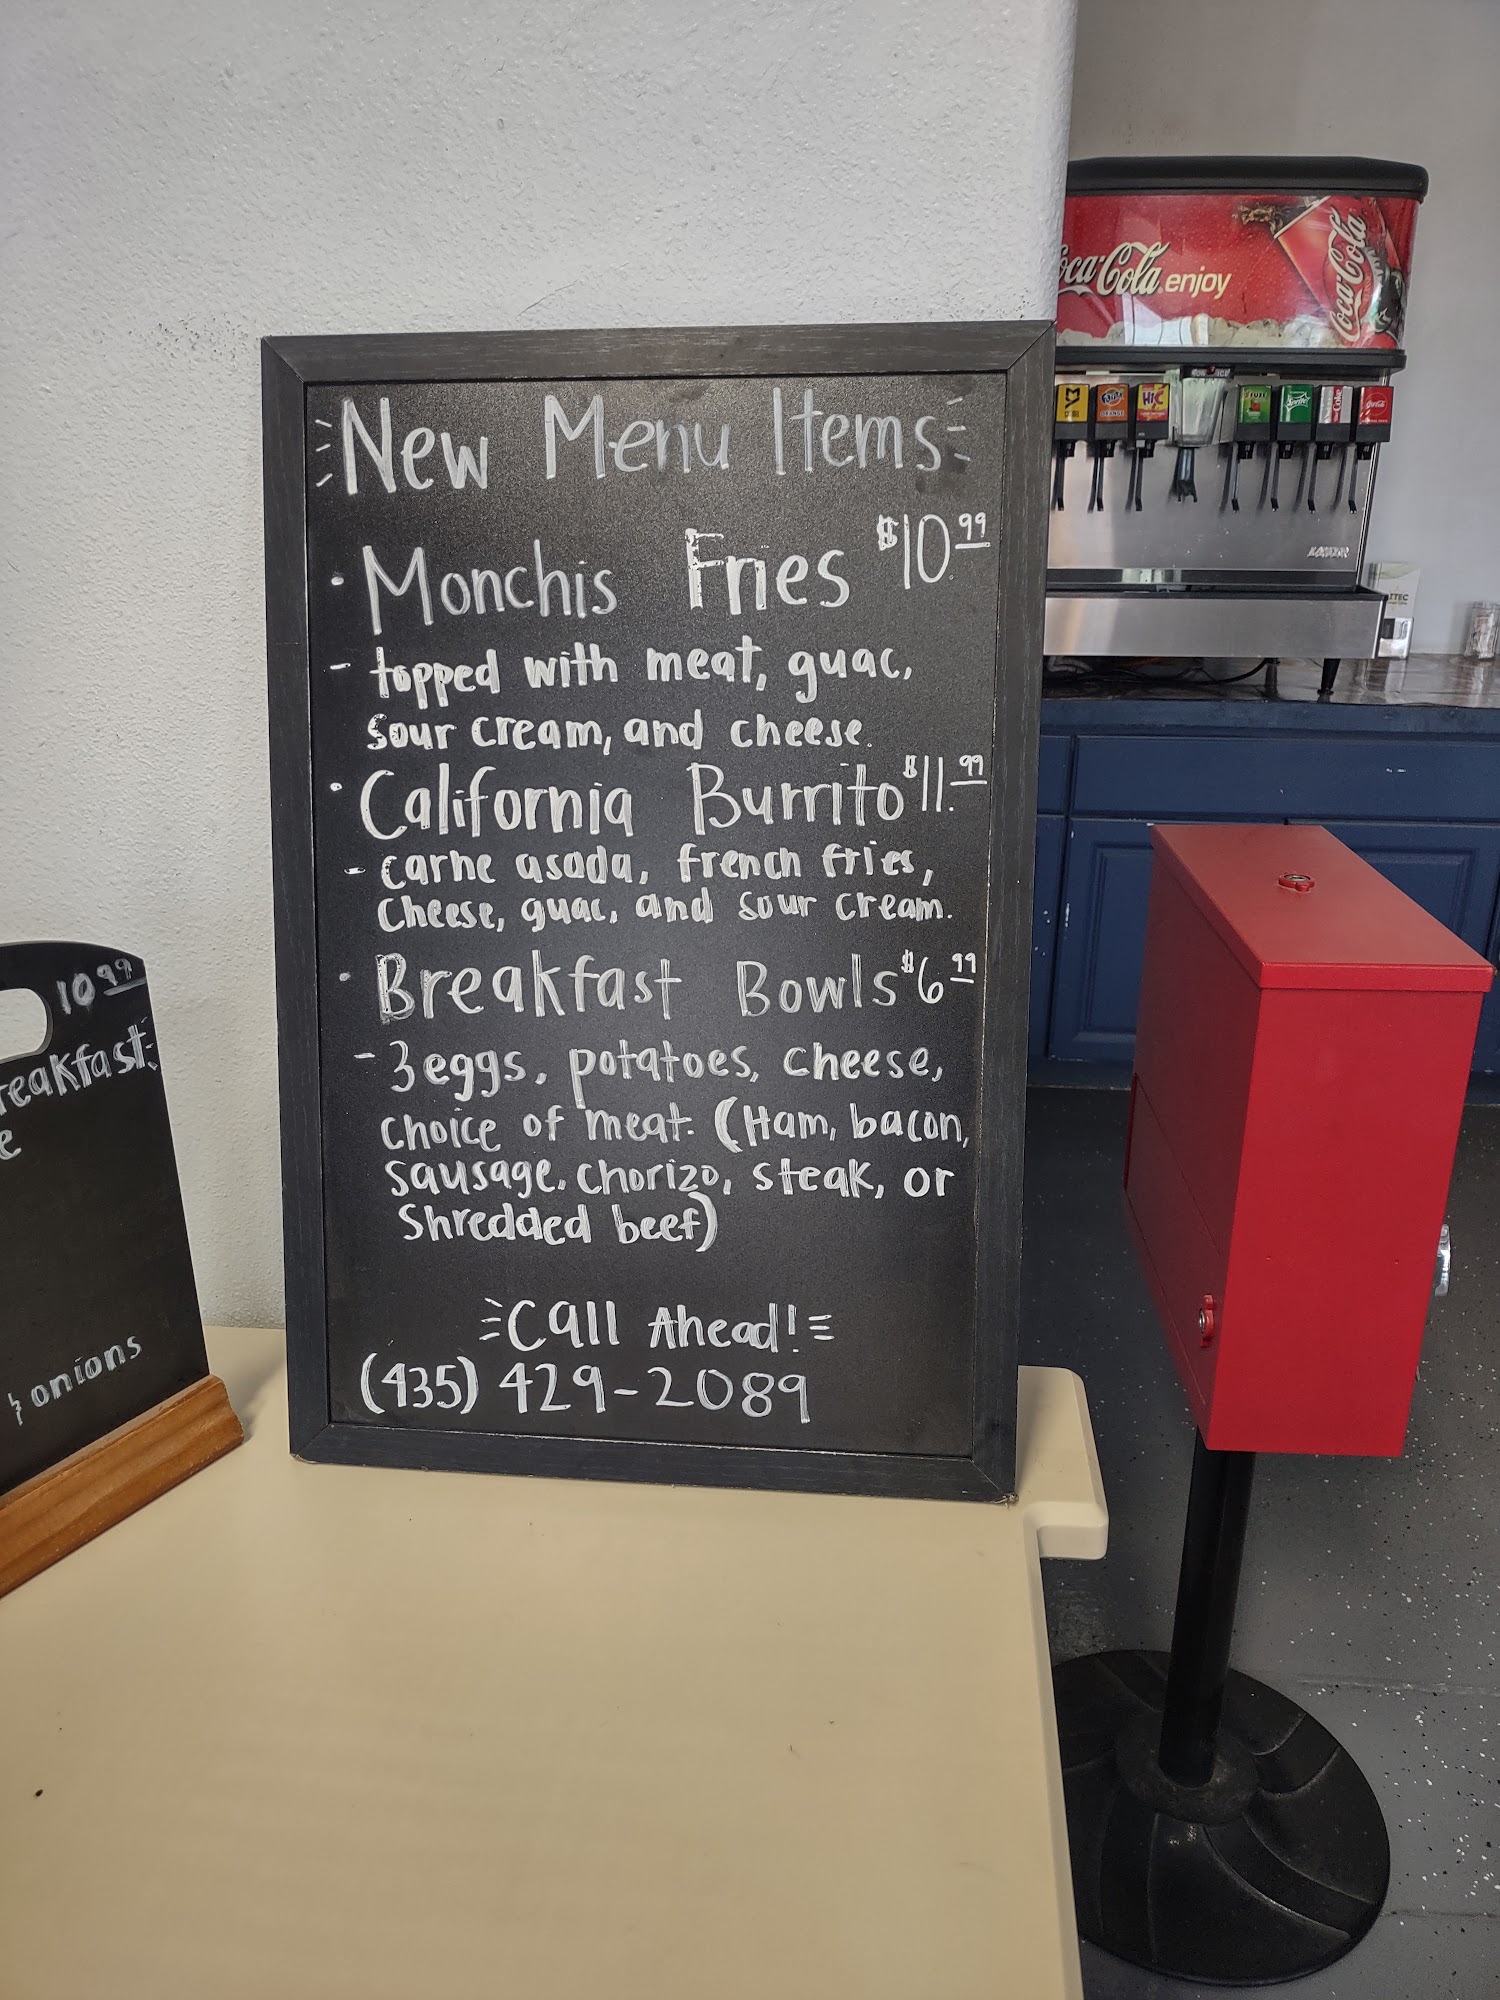 New Menu Items
• Monchis Fries $10.99
- topped with meat, guac,
sour cream, and cheese.
• California Burrito $11.99
- carne asada, french fries,
cheese, guac, and sour cream.
• Breakfast Bowls $6.99
- 3 eggs, potatoes, cheese,
choice of meat. (Ham, bacon,
sausage, chorizo, steak, or
shredded beef)
Call Ahead!
(435) 429-2089
10.99
reakfast
e
& onions
Coca-Cola enjoy
Coca-Cola
Fanta
ORANGE
HI-C
FUZE
Sprite
Diet Coke
Coca-Cola
LANCER